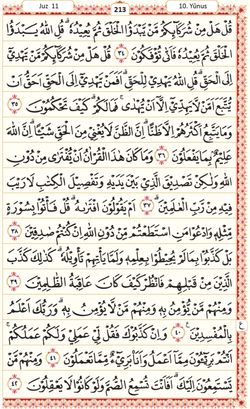 Juz 11 213 10. Yûnus
قُلْ هَلْ مِنْ شُرَكَٓائِكُمْ مَنْ يَبْدَؤُا الْخَلْقَ ثُمَّ يُعٖيدُهُؕ قُلِ اللّٰهُ يَبْدَؤُا
الْخَلْقَ ثُمَّ يُعٖيدُهُ فَاَنّٰى تُؤْفَكُونَ ﴿٣٤﴾ قُلْ هَلْ مِنْ شُرَكَٓائِكُمْ مَنْ يَهْدٖٓي
اِلَى الْحَقِّؕ قُلِ اللّٰهُ يَهْدٖي لِلْحَقِّؕ اَفَمَنْ يَهْدٖٓي اِلَى الْحَقِّ اَحَقُّ اَنْ
يُتَّبَعَ اَمَّنْ لَا يَهِدّٖٓي اِلَّٓا اَنْ يُهْدٰىۚ فَمَا لَكُمْ كَيْفَ تَحْكُمُونَ ﴿٣٥﴾
وَمَا يَتَّبِعُ اَكْثَرُهُمْ اِلَّا ظَنًّاؕ اِنَّ الظَّنَّ لَا يُغْنٖي مِنَ الْحَقِّ شَيْـٔاًؕ اِنَّ اللّٰهَ
عَلٖيمٌ بِمَا يَفْعَلُونَ ﴿٣٦﴾ وَمَا كَانَ هٰذَا الْقُرْاٰنُ اَنْ يُفْتَرٰى مِنْ دُونِ
اللّٰهِ وَلٰكِنْ تَصْدٖيقَ الَّذٖي بَيْنَ يَدَيْهِ وَتَفْصٖيلَ الْكِتَابِ لَا رَيْبَ
فٖيهِ مِنْ رَبِّ الْعَالَمٖينَ ﴿٣٧﴾ اَمْ يَقُولُونَ افْتَرٰيهُؕ قُلْ فَأْتُوا بِسُورَةٍ
مِثْلِهٖ وَادْعُوا مَنِ اسْتَطَعْتُمْ مِنْ دُونِ اللّٰهِ اِنْ كُنْتُمْ صَادِقٖينَ ﴿٣٨﴾
بَلْ كَذَّبُوا بِمَا لَمْ يُحٖيطُوا بِعِلْمِهٖ وَلَمَّا يَأْتِهِمْ تَأْوٖيلُهُؕ كَذٰلِكَ كَذَّبَ
الَّذٖينَ مِنْ قَبْلِهِمْ فَانْظُرْ كَيْفَ كَانَ عَاقِبَةُ الظَّالِمٖينَ ﴿٣٩﴾
وَمِنْهُمْ مَنْ يُؤْمِنُ بِهٖ وَمِنْهُمْ مَنْ لَا يُؤْمِنُ بِهٖؕ وَرَبُّكَ اَعْلَمُ
بِالْمُفْسِدٖينَ ﴿٤٠﴾ وَاِنْ كَذَّبُوكَ فَقُلْ لٖي عَمَلٖي وَلَكُمْ عَمَلُكُمْۚ
اَنْتُمْ بَرٖٓيؤُ۫نَ مِمَّٓا اَعْمَلُ وَاَنَا۬ بَرٖٓيءٌ مِمَّا تَعْمَلُونَ ﴿٤١﴾ وَمِنْهُمْ مَنْ
يَسْتَمِعُونَ اِلَيْكَؕ اَفَاَنْتَ تُسْمِعُ الصُّمَّ وَلَوْ كَانُوا لَا يَعْقِلُونَ ﴿٤٢﴾